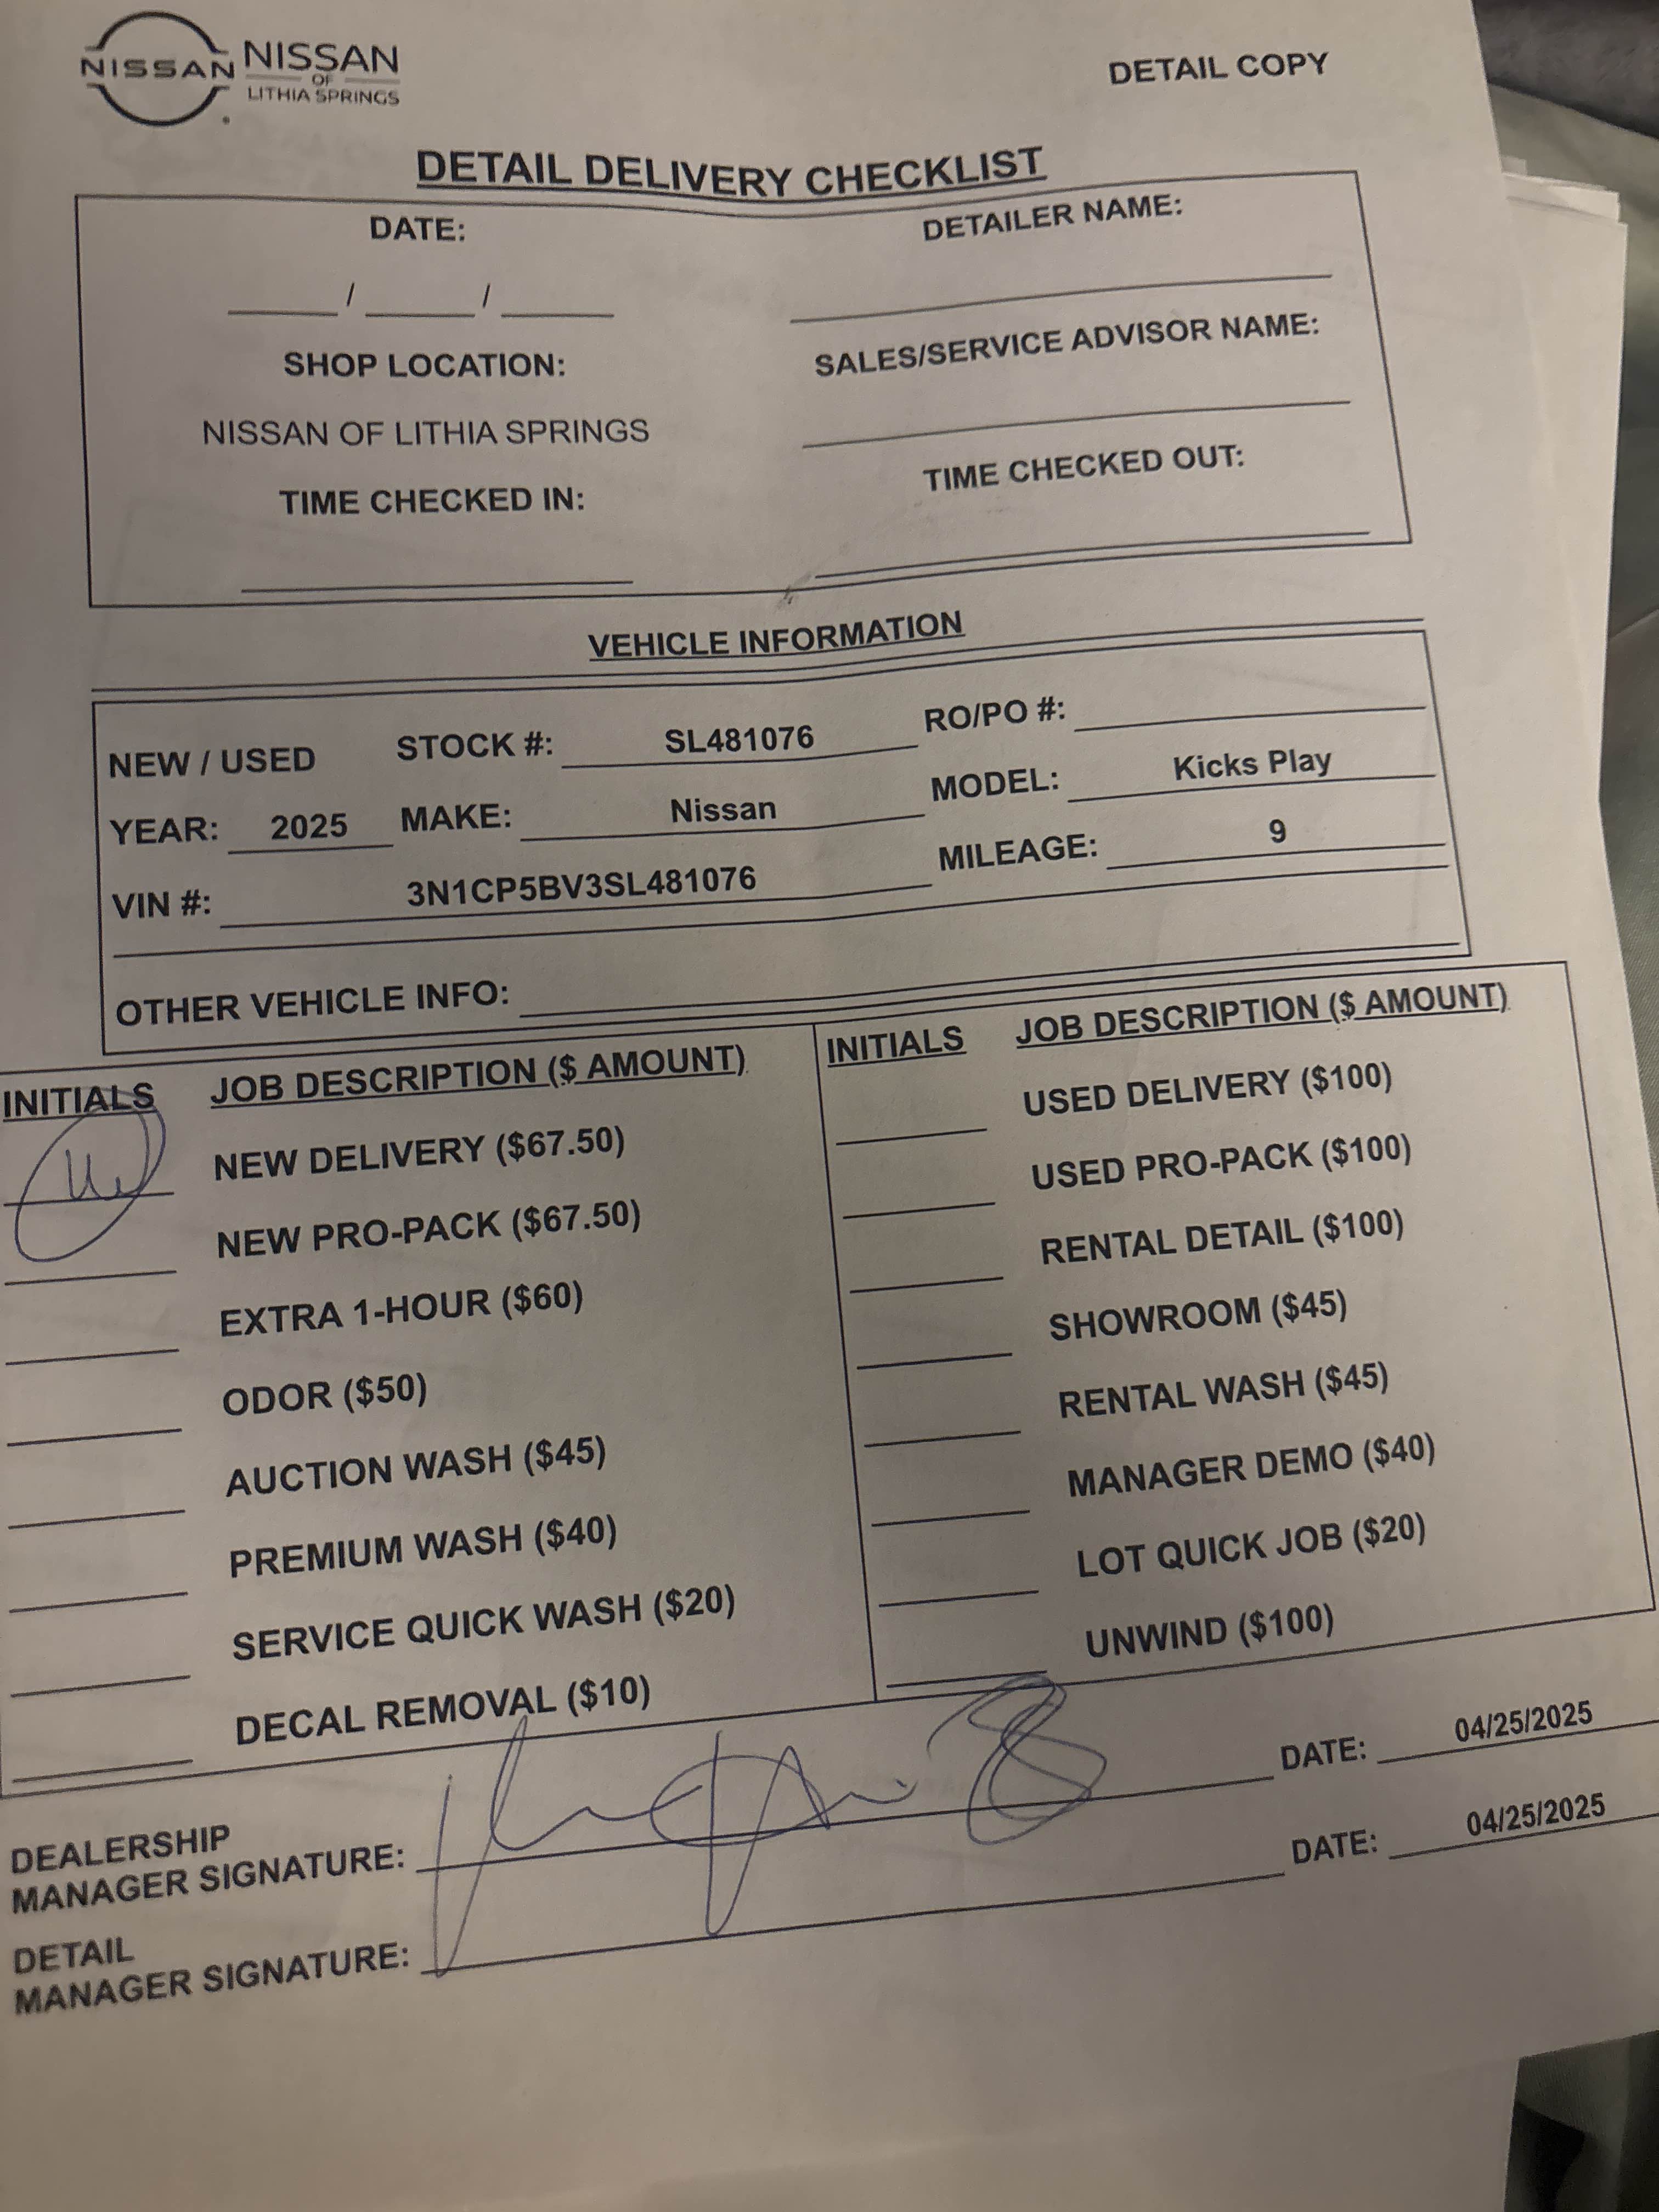 NISSAN
NISSAN
OF
LITHIA SPRINGS
DETAIL COPY
DETAIL DELIVERY CHECKLIST
DATE:
DETAILER NAME:
____/____/____
SHOP LOCATION:
SALES/SERVICE ADVISOR NAME:
NISSAN OF LITHIA SPRINGS
TIME CHECKED IN:
TIME CHECKED OUT:
VEHICLE INFORMATION
NEW / USED STOCK #: SL481076 RO/PO #:
YEAR: 2025 MAKE: Nissan MODEL: Kicks Play
VIN #: 3N1CP5BV3SL481076 MILEAGE: 9
OTHER VEHICLE INFO:
INITIALS JOB DESCRIPTION ($ AMOUNT)
NEW DELIVERY ($67.50)
NEW PRO-PACK ($67.50)
EXTRA 1-HOUR ($60)
ODOR ($50)
AUCTION WASH ($45)
PREMIUM WASH ($40)
SERVICE QUICK WASH ($20)
DECAL REMOVAL ($10)
INITIALS JOB DESCRIPTION ($ AMOUNT)
USED DELIVERY ($100)
USED PRO-PACK ($100)
RENTAL DETAIL ($100)
SHOWROOM ($45)
RENTAL WASH ($45)
MANAGER DEMO ($40)
LOT QUICK JOB ($20)
UNWIND ($100)
DEALERSHIP
MANAGER SIGNATURE: DATE: 04/25/2025
DETAIL
MANAGER SIGNATURE: DATE: 04/25/2025